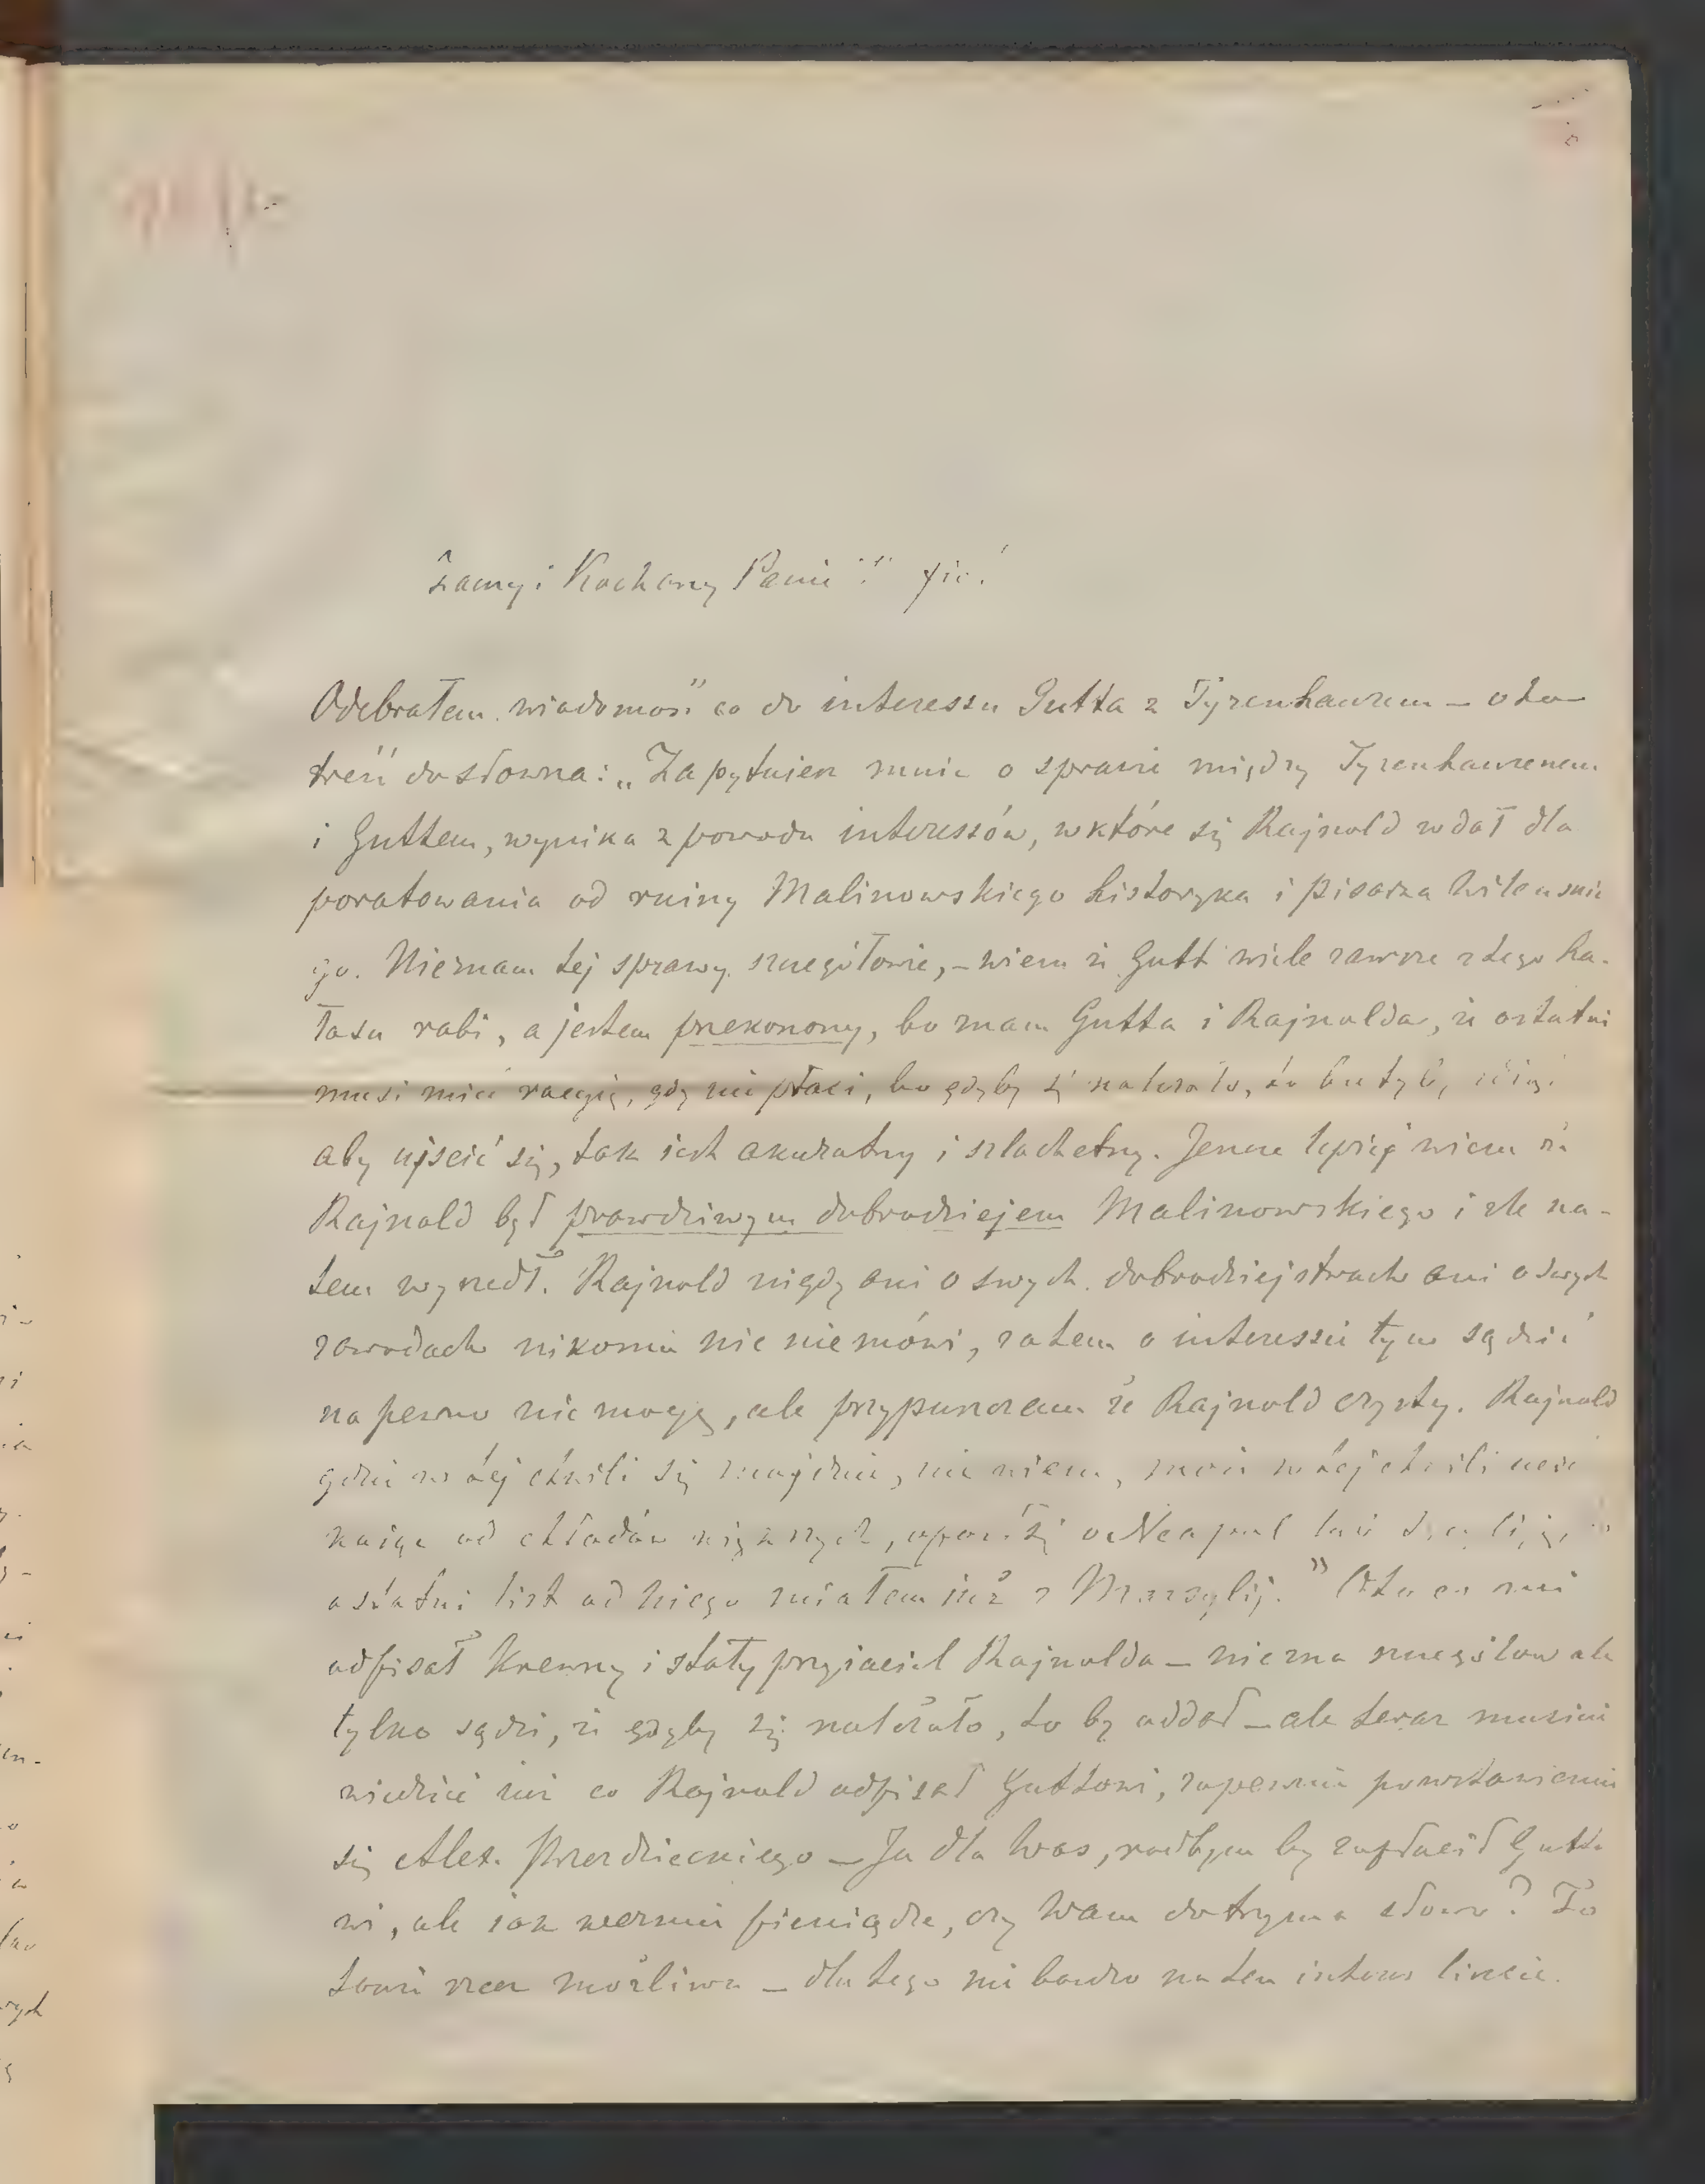 Zacny i Kochany Panie
Odebrałem wiadomość co do interessu Gutta z Tyzenhauzem — oto
treść dosłowna: „Zapytujesz mnie o sprawie między Tyzenhauzenem
i Guttem, wynika z powodu interessów, w które się Rajnold wdał dla
poratowania od ruiny Malinowskiego historyka i pisarza Wilenskie
go. Nieznam tej sprawy szczegółowie, – wiem że Gutt wiele zawsze z tego ha-
łasu robi, a jestem przekonony, bo znam Gutta i Rajnolda, że ostatni
musi mieć racyję, gdy nie płaci, bo gdyby się należało, to
aby uiścić się, tak jest akuratny i szlachetny. Jeszcze lepiej wiem że
Rajnold był prawdziwym dobrodziejem Malinowskiego i źle na-
tem wyszedł. Rajnold nigdy ani o swych dobrodziejstwach ani o swych
zawodach nikomu nic niemówi, zatem o interessie tym sądzić
na pewno nie mogę, ale przypuszczam że Rajnold czysty. Rajnold
gdzie w tej chwili się znajduje, nie wiem, może w tej chwili ucie
kając od chłodów o Neapol
ostatni list od niego miałem już z Marsylij.” Oto co mi
odpisał krewny i stały przyjaciel Rajnolda — niezna szczegółow ale
tylko sądzi, że gdyby się należało, to by oddał — ale teraz musicie
wiedzieć już co Rajnold odpisał Guttowi, zapewnie powstawieniu
się Alex. Przezdzieckiego — Ja dla Was, radbym by zapłacił Gutto
wi, ale jak weźmie pieniądze, czy Wam dotrzyma słowa? To
także rzecz możliwa — dla tego nie bardzo na ten interes liczcie.